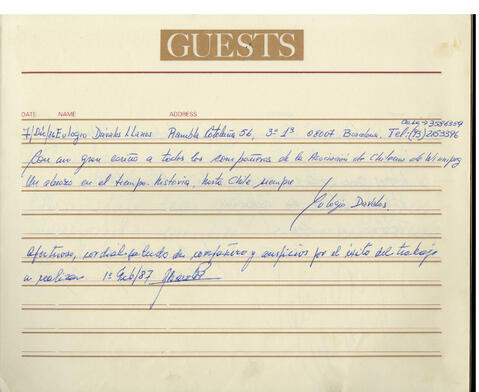 GUESTS
DATE NAME ADDRESS
Casa→3586359
7/Dic/86 Eulogio Dávalos Llanos Rambla Cataluña 56, 3º 1ª 08007 Barcelona. Tel:(93)2153396
Con un gran cariño a todos los compañeros de la Asociación de Chilenos de Winnipeg
Un abrazo en el tiempo. historia, hasta Chile siempre
Eulogio Dávalos.
Afectuoso, cordial saludo de compañero y auspicios por el éxito del trabajo
a realizar. 1º Feb/87